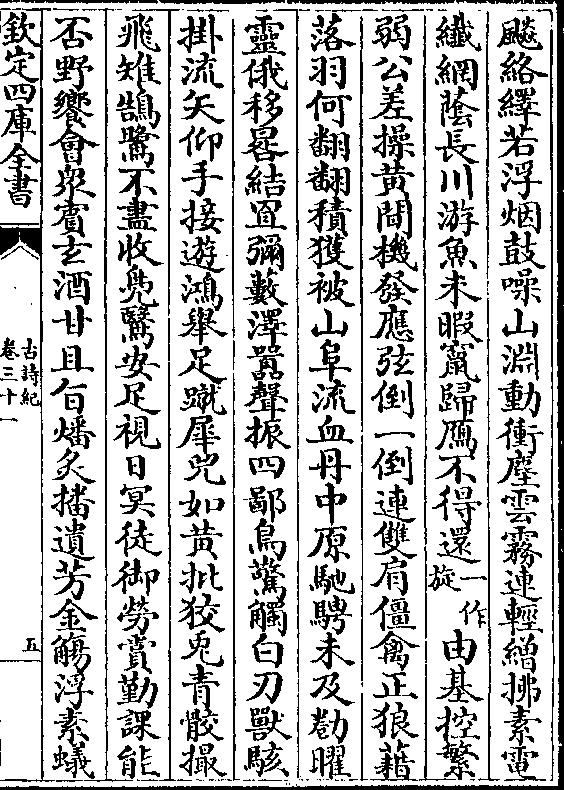 飈絡繹若浮烟鼓噪山淵動衝塵雲霧連輕繒拂素電
纖網蔭長川游魚未暇竄歸鴈不得還一作旋由基控繁
弱公差操黄間機發應弦倒一倒連雙肩僵禽正狼藉
落羽何翩翩積獲被山阜流血丹中原馳騁未及勌曜
靈俄移晷結罝彌藪澤囂聲振四鄙鳥驚觸白刃獸駭
掛流矢仰手接遊鴻舉足蹴犀兕如黄批狡兎青骹撮
飛雉鵠鷺不盡收鳧鷖安足視日冥徒御勞賞勤課能
否野饗會衆賓玄酒甘且㫖燔炙播遺芳金觴浮素蟻
欽定四庫全書
古詩紀
卷三十一
五